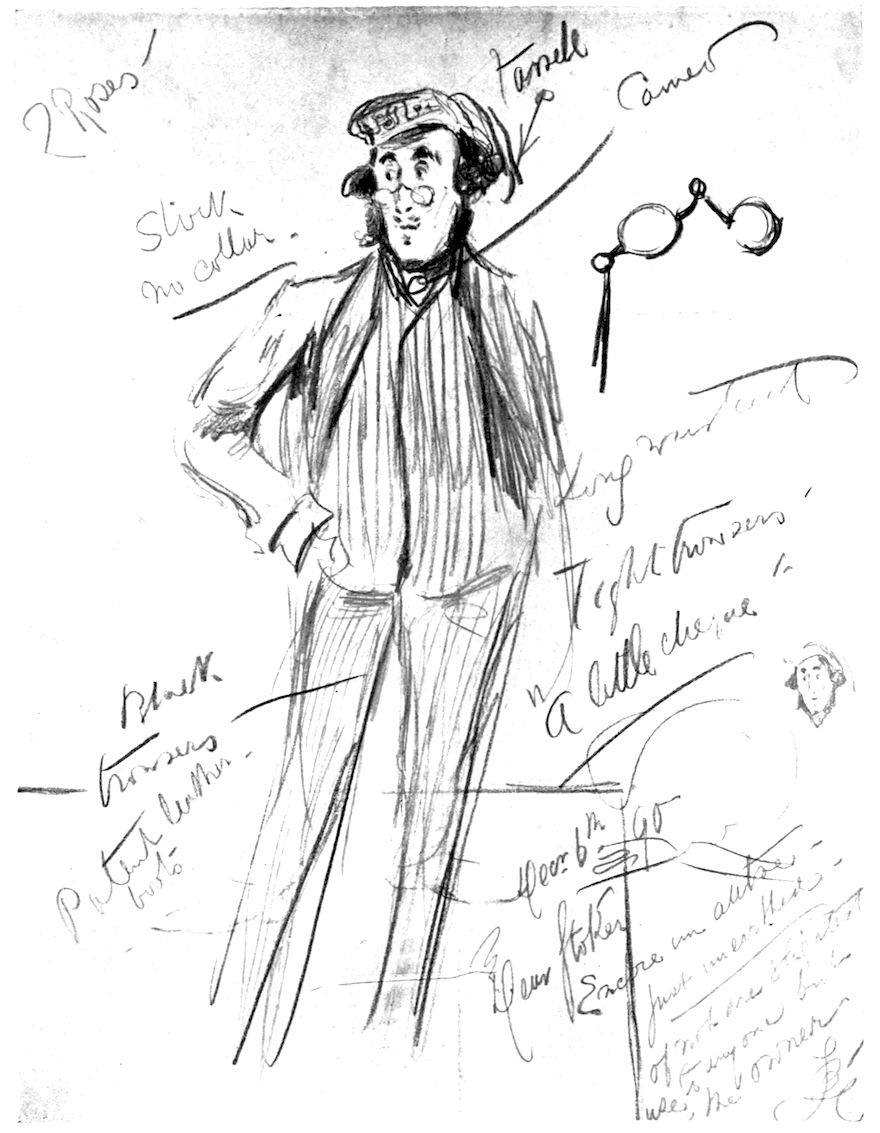 2 Roses
Tassell
Cameo
Stock
no collar.
long waistcoat
Tight trousers
A little cheque
Black
trousers
Patent leather
boots
Decr. 6th 90
Dear Stoker
Encore un autre
Just unearthed
of not one slightest
to anyone but
use, the owner